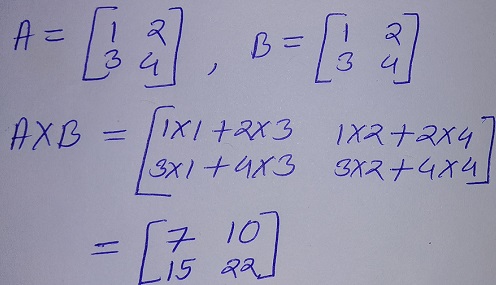 A = [1 2
3 4] , B = [1 2
3 4]
A×B = [1×1+2×3 1×2+2×4
3×1+4×3 3×2+4×4]
= [7 10
15 22]